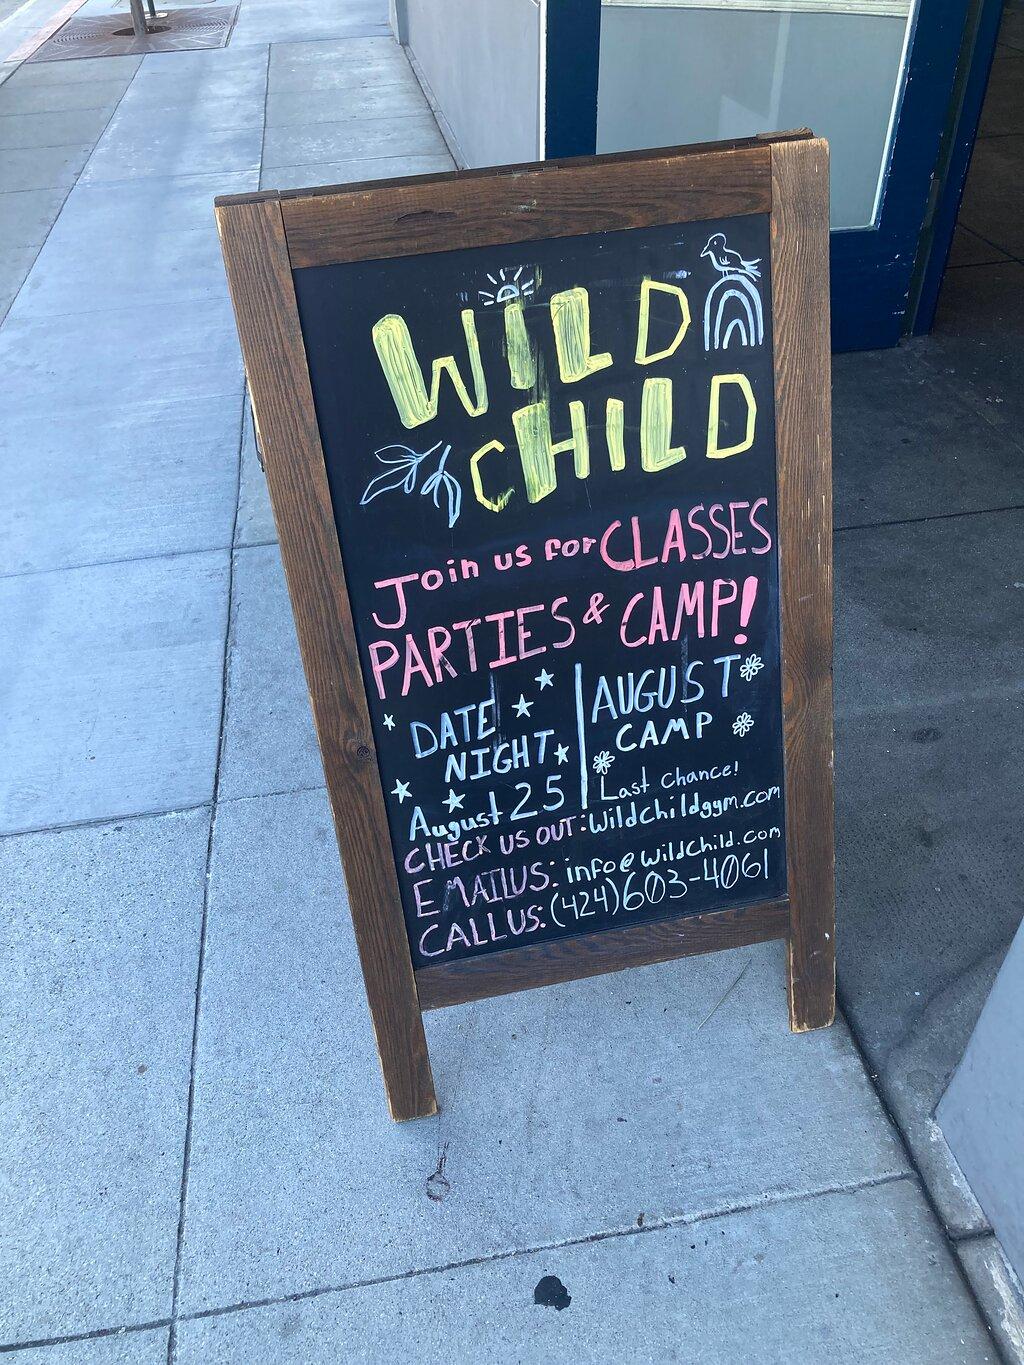 WILD
CHILD
Join us for CLASSES
PARTIES & CAMP!
DATE
NIGHT
August 25
AUGUST
CAMP
Last Chance!
CHECK US OUT: Wildchildgym.com
EMAIL US: info@wildchild.com
CALL US: (424)603-4061